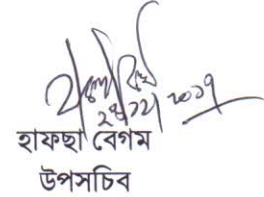 ২৪/১২/২০১৭
হাফছা বেগম
উপসচিব